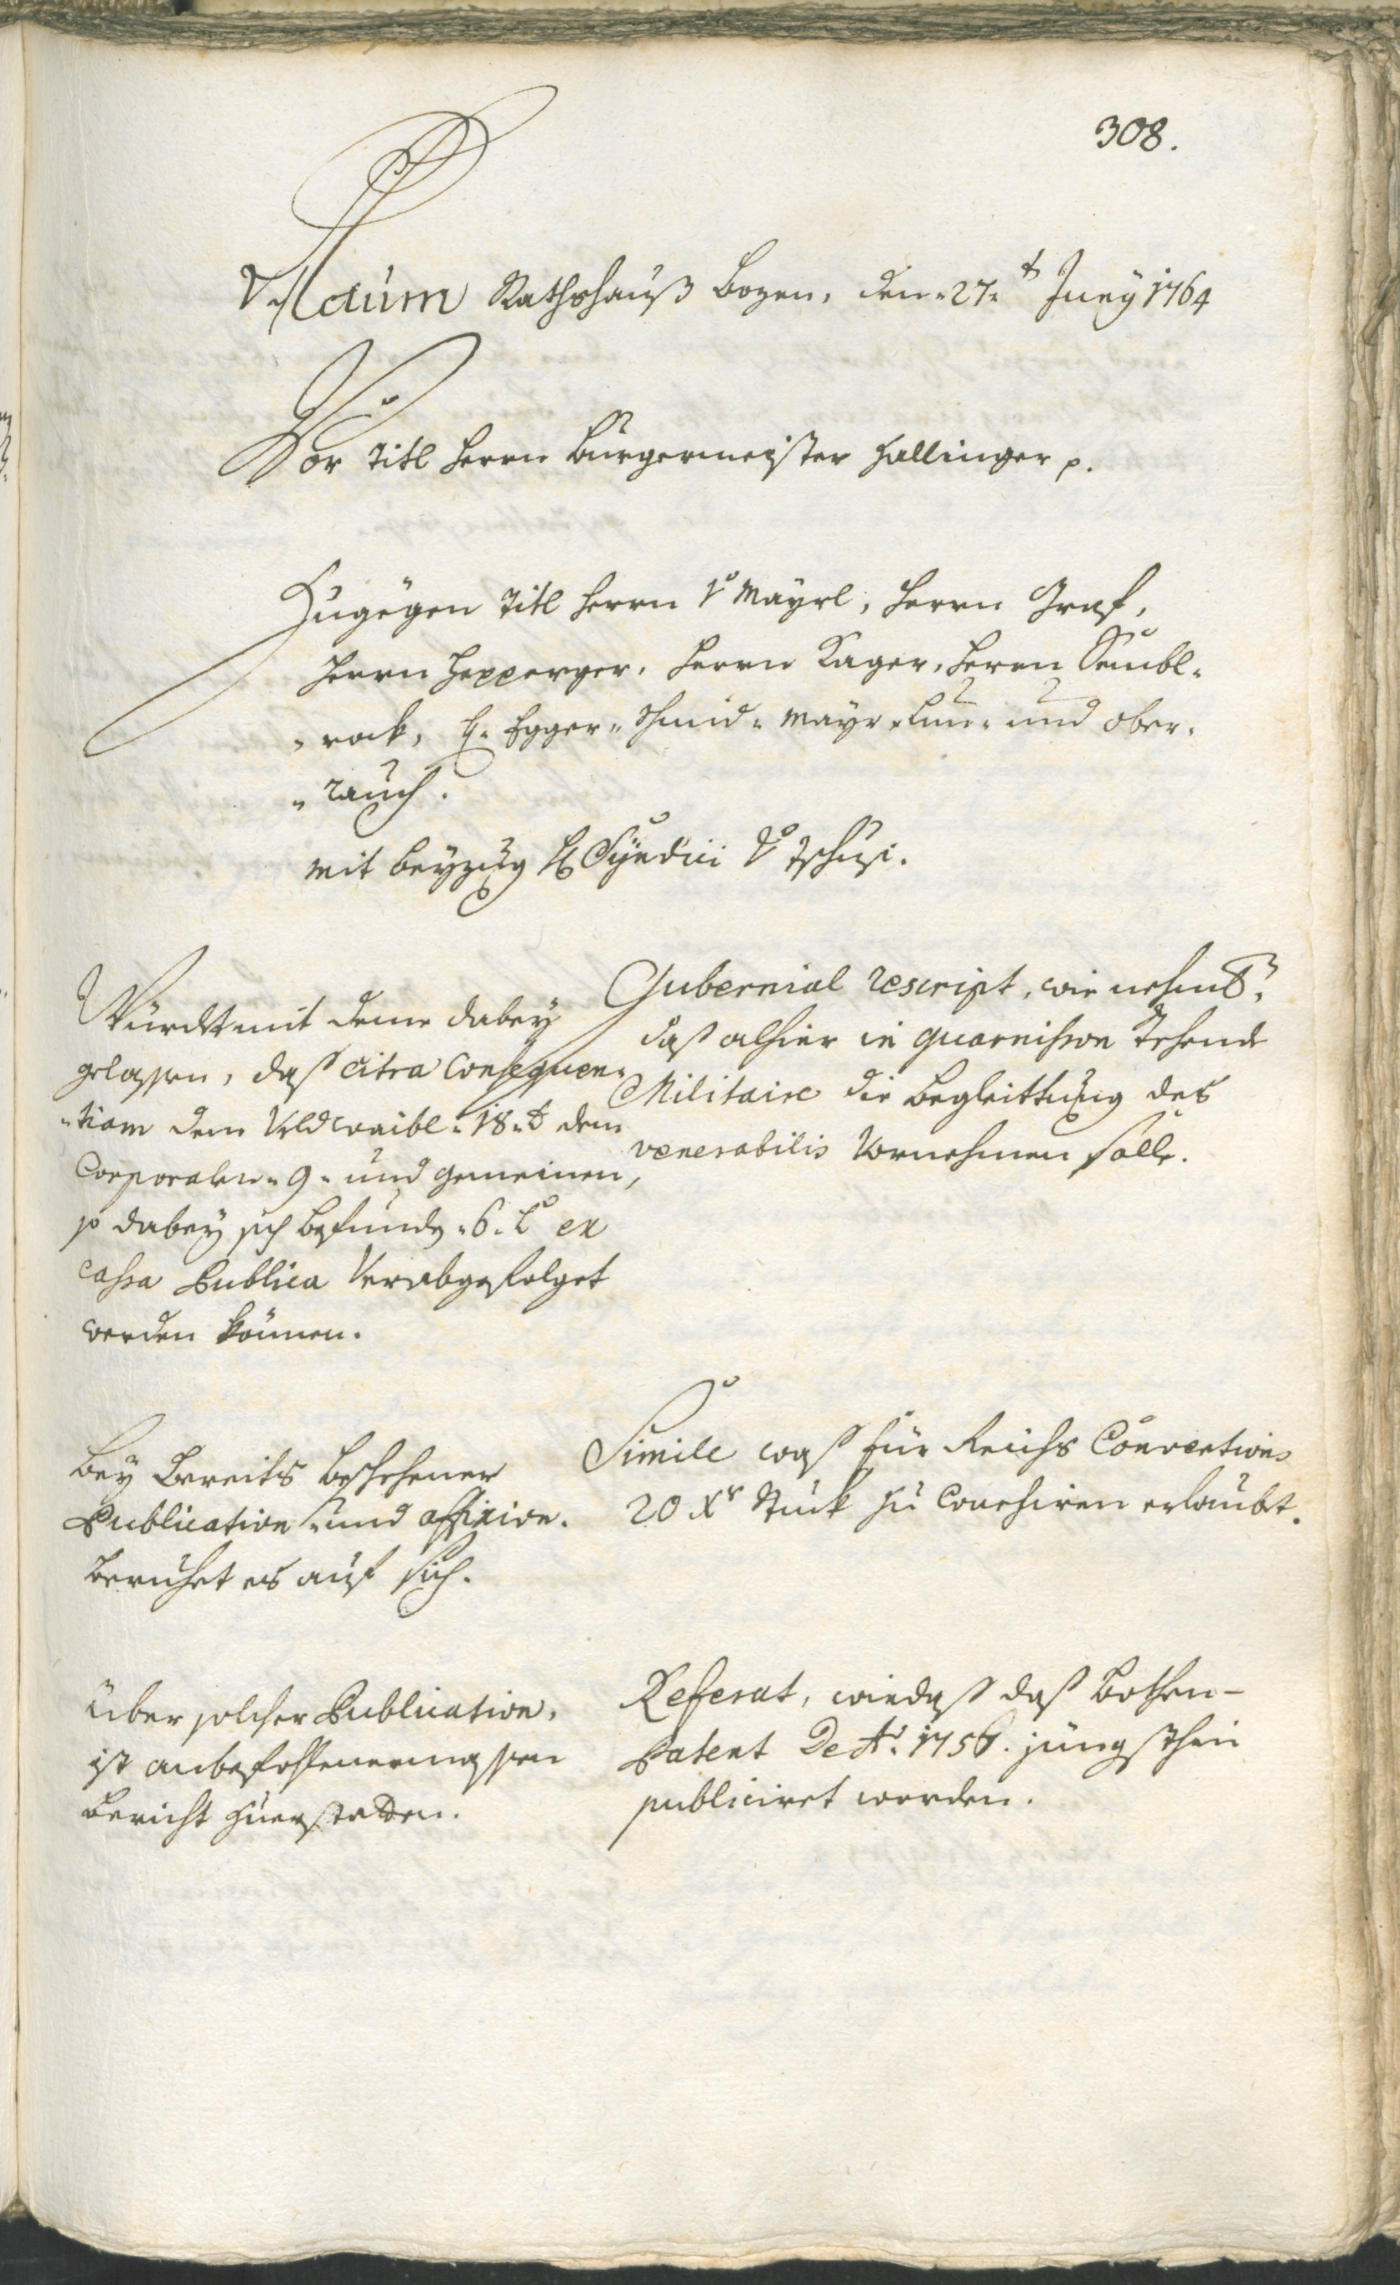 308.
Actum Rathshauß Bozen, den 27.t Juny 1764
Vor Titl Herrn Burgermeister Hallinger p.
Zugegen Titl Herrn v Mayrl, Herrn Graf,
Herrn Hepperger, Herrn Kager, Herrn Seubl-
rock, H. Egger- Schmid- Mayr- und Ober-
rauch.
mit beyzug H Syndici v Tschusi.
Gubernial rescript, wie nehmb.
daß alhier in guarnihson stehende
Militaire die begleittung des
venerabilis vornehmen solle.
Würdt mit deme dabey
gelassen, daß citra Consequen-
tiam dem Veldwaibl 18.t dem
Corporalen 9. und gemeinen,
so dabey sich befinde 6. x ex
cassa Publica verabgefolget
werden können.
Simile waß für Reichs Conventions
20 Xr Stuck zu Courshiren erlaubt.
Bey bereits beschehener
Publication und affixion
beruhet es auf sich.
Referat, wie daß daß Bothen-
Patent De Ao. 1756. jüngsthin
publiciret worden.
Über solcher Publication,
ist anbefohlenermassen
bericht zuerstatten.